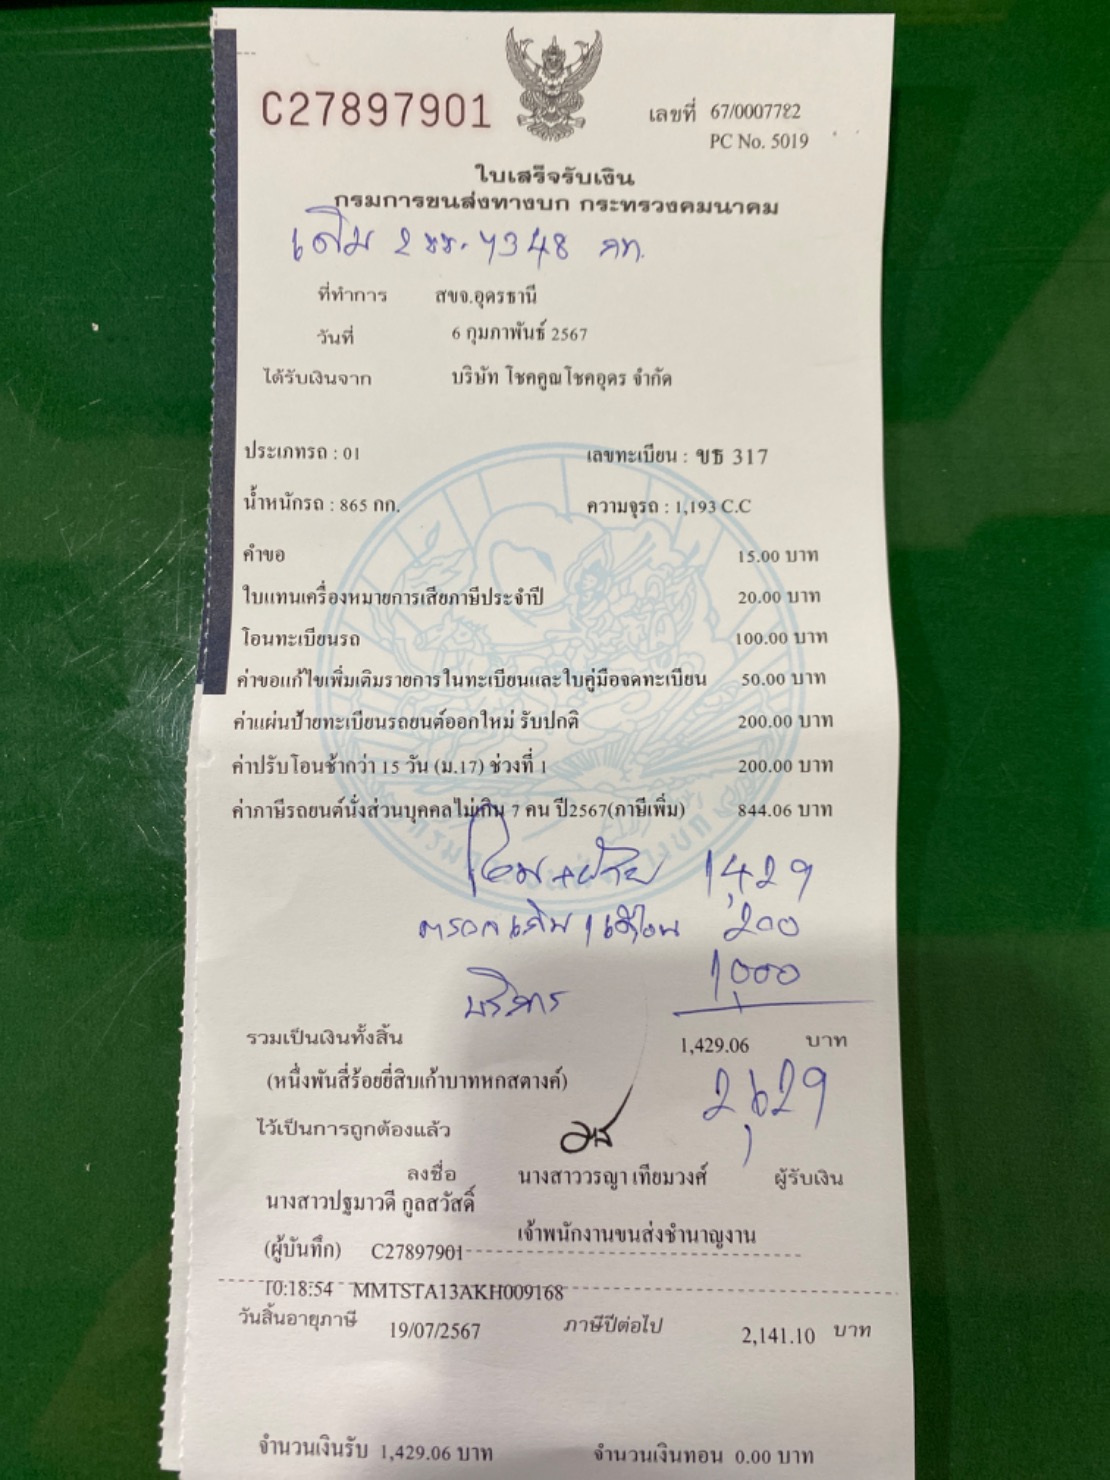 C27897901
เลขที่ 67/0007782
PC No. 5019
ใบเสร็จรับเงิน
กรมการขนส่งทางบก กระทรวงคมนาคม
เดิม 2 ขร. 7348 กท.
ที่ทำการ สขจ.อุดรธานี
วันที่ 6 กุมภาพันธ์ 2567
ได้รับเงินจาก บริษัท โชคคูณโชคอุดร จำกัด
ประเภทรถ : 01 เลขทะเบียน : ขธ 317
น้ำหนักรถ : 865 กก. ความจุรถ : 1,193 C.C
คำขอ 15.00 บาท
ใบแทนเครื่องหมายการเสียภาษีประจำปี 20.00 บาท
โอนทะเบียนรถ 100.00 บาท
ค่าขอแก้ไขเพิ่มเติมรายการในทะเบียนและใบคู่มือจดทะเบียน 50.00 บาท
ค่าแผ่นป้ายทะเบียนรถยนต์ออกใหม่ รับปกติ 200.00 บาท
ค่าปรับโอนช้ากว่า 15 วัน (ม.17) ช่วงที่ 1 200.00 บาท
ค่าภาษีรถยนต์นั่งส่วนบุคคลไม่เกิน 7 คน ปี2567(ภาษีเพิ่ม) 844.06 บาท
1,429
200
บริการ 1,000
รวมเป็นเงินทั้งสิ้น 1,429.06 บาท
(หนึ่งพันสี่ร้อยยี่สิบเก้าบาทหกสตางค์) 2,629
ไว้เป็นการถูกต้องแล้ว
ลงชื่อ นางสาววรญา เทียมวงศ์ ผู้รับเงิน
นางสาวปฐมาวดี กูลสวัสดิ์
เจ้าพนักงานขนส่งชำนาญงาน
(ผู้บันทึก) C27897901
10:18:54 MMTSTA13AKH009168
วันสิ้นอายุภาษี 19/07/2567 ภาษีปีต่อไป 2,141.10 บาท
จำนวนเงินรับ 1,429.06 บาท จำนวนเงินทอน 0.00 บาท